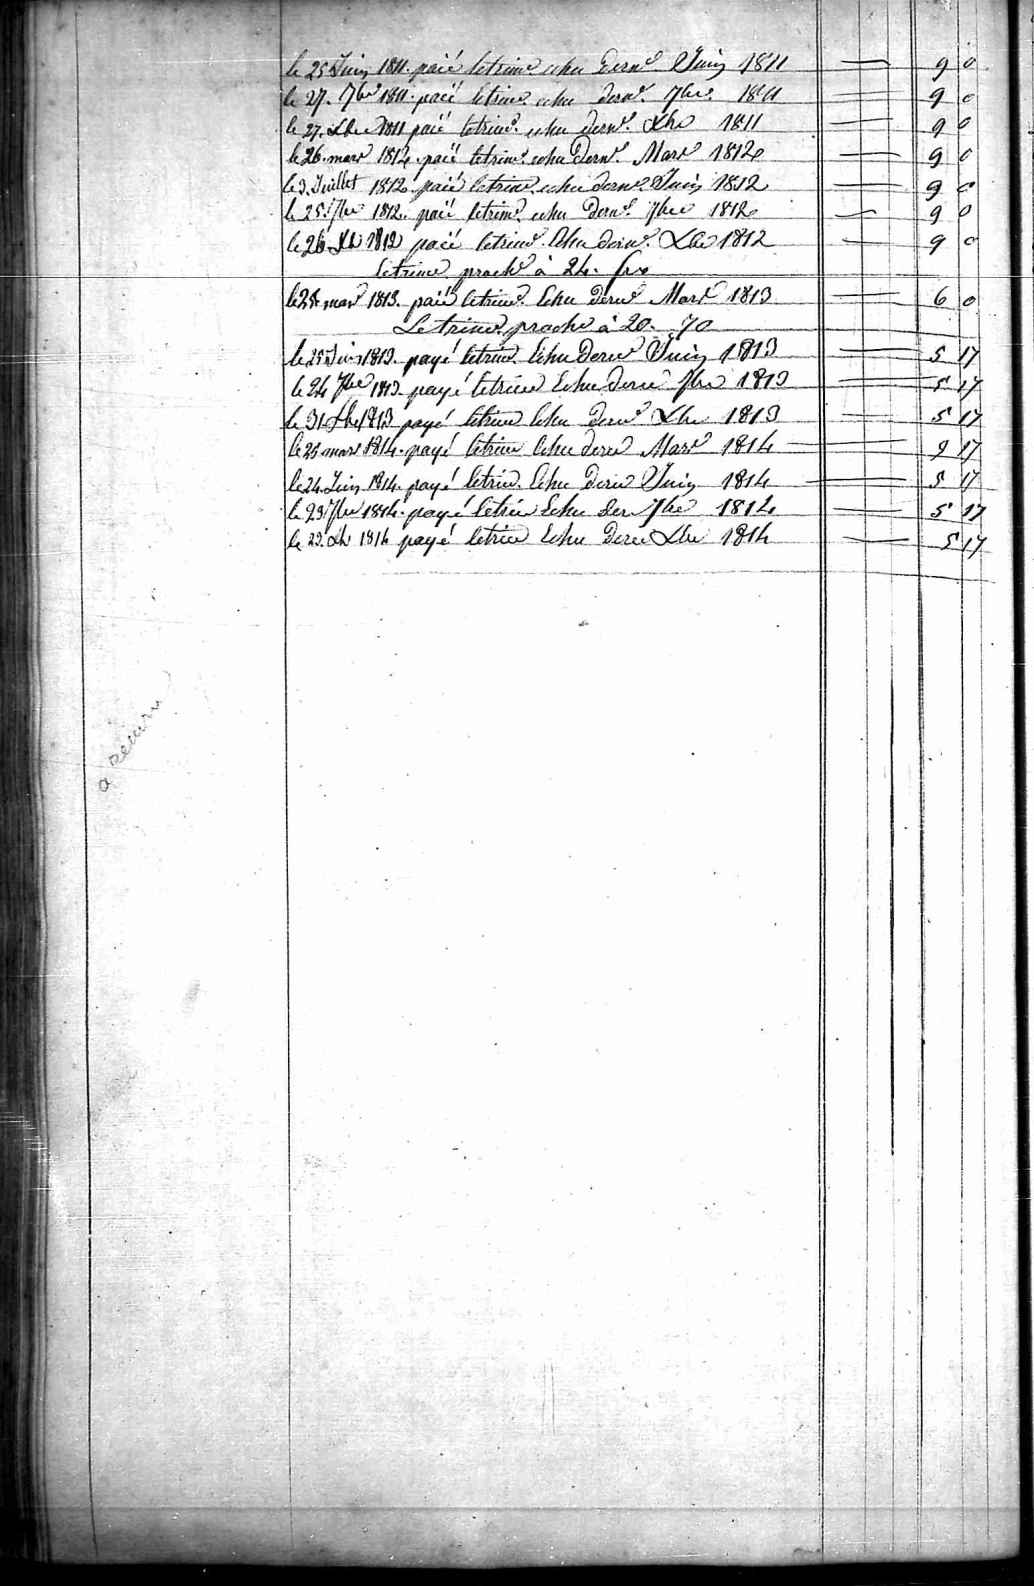 le 25 Juin 1811. paié letrimᵉ echu Dernᵉʳ Juin 1811 9 0
le 27. 7bre 1811. paié letrimᵉ echu dernᵉʳ. 7bre. 1811 9 0
le 27. Xbre 1811 paié letrimᵉ. echu dernᵉʳ. Xbre 1811 9 0
le 26. mars 1812. paié letrimᵉ. echu Dernᵉʳ. Mars 1812 9 0
le 3. Juillet 1812 paié letrimᵉ. echu dernᵉʳ Juin 1812 9 0
le 25. 7bre 1812. paié letrimᵉ. echu Dernᵉʳ. 7bre 1812 9 0
le 26. Xbre 1812 paié letrimᵉ. Echu dernᵉʳ. Xbre 1812 9 0
letrimᵉ proch à 24. frs
le 24 mars 1813. paié letrimᵉ. Echu Dernᵉʳ Mars 1813 6 0
Letrimᵉ. proch à 20. 70
le 25 Juin 1813. payé letrimᵉ. Echu Dernᵉʳ Juin 1813 5 17
le 24 7bre 1813. payé letrimᵉ Echu dernᵉʳ 7bre 1813 5 17
le 31 Xbre 1813 payé letrimᵉ Echu Dernᵉʳ Xbre 1813 5 17
le 25 mars 1814. payé letrimᵉ Echu derᵉʳ Mars 1814 5 17
le 24 Juin 1814. payé letrimᵉ. Echu Derᵉʳ Juin 1814 5 17
le 23 7bre 1814. payé letrimᵉ Echu Der 7bre 1814 5 17
le 23. Xbre 1814 payé letrimᵉ Echu Derᵉʳ Xbre 1814 5 17